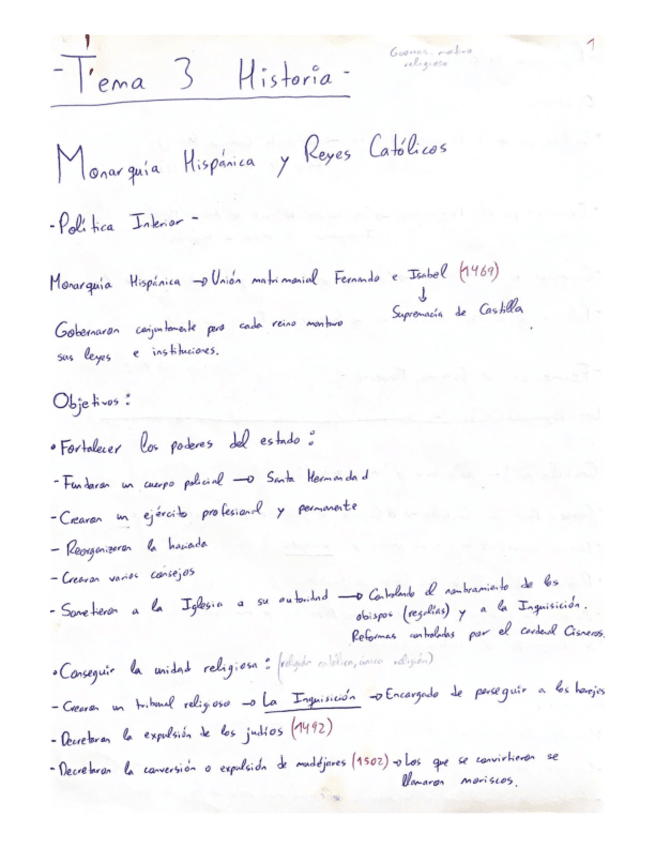 Guerras motivo
religioso
1
- Tema 3 Historia -
Monarquía Hispánica y Reyes Católicos
- Política Interior -
Monarquía Hispánica → Unión matrimonial Fernando e Isabel (1469)
↓
Supremacía de Castilla
Gobernaron conjuntamente pero cada reino mantuvo
sus leyes e instituciones.
Objetivos:
• Fortalecer los poderes del estado:
- Fundaron un cuerpo policial → Santa Hermandad
- Crearon un ejército profesional y permanente
- Reorganizaron la hacienda
- Crearon varios consejos
- Sometieron a la Iglesia a su autoridad → Controlando el nombramiento de los
obispos (regalías) y a la Inquisición.
Reformas controladas por el cardenal Cisneros.
• Conseguir la unidad religiosa: (religión católica, única religión)
- Crearon un tribunal religioso → La Inquisición → Encargado de perseguir a los herejes
- Decretaron la expulsión de los judíos (1492)
- Decretaron la conversión o expulsión de mudéjares (1502) → Los que se convirtieron se
llamaron moriscos.